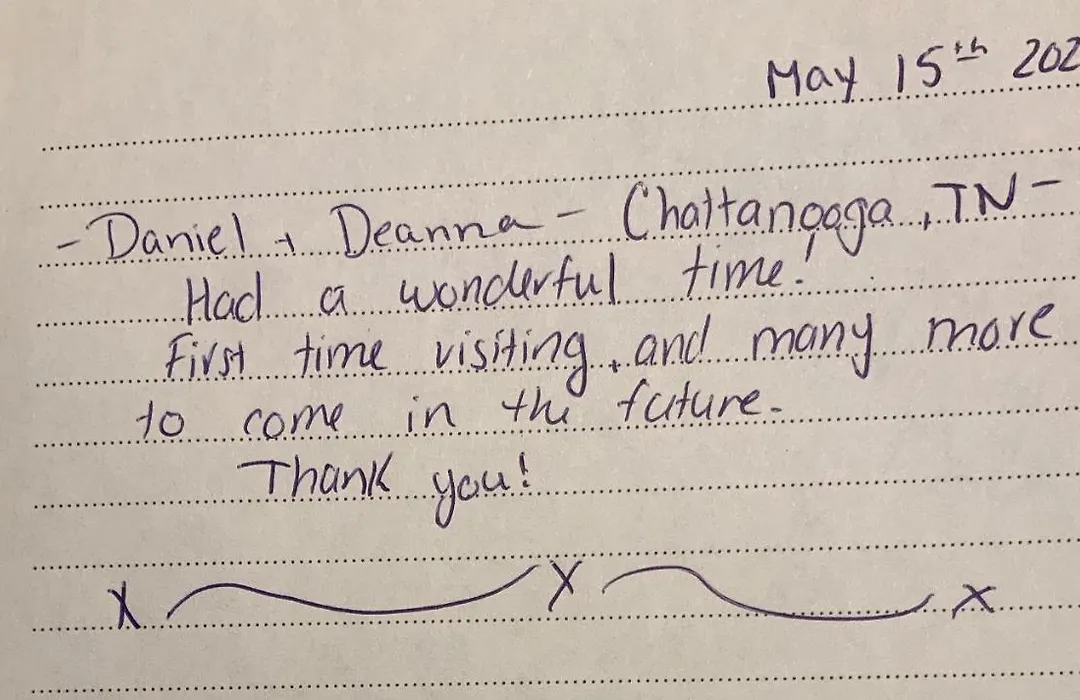 May 15th 202
- Daniel + Deanna - Chattanooga, TN -
Had a wonderful time!
First time visiting, and many more
to come in the future.
Thank you!
X X X